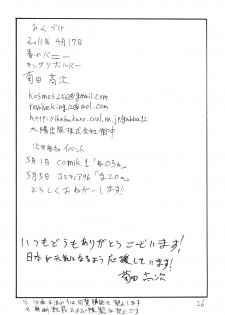 おくづけ
2011年 4月17日
春のバニー
キングリボルバー
菊田高次
kosmos256@gmail.com
revolveking12@aol.com
太陽出版株式会社 御中
次回参加イベント
5月1日 comik 1 「る03a」
5月5日 コミティア96 「る20a」
よろしくおねがいします!
いつもどうもありがとうございます!
日本が元気になるよう応援しています!
26